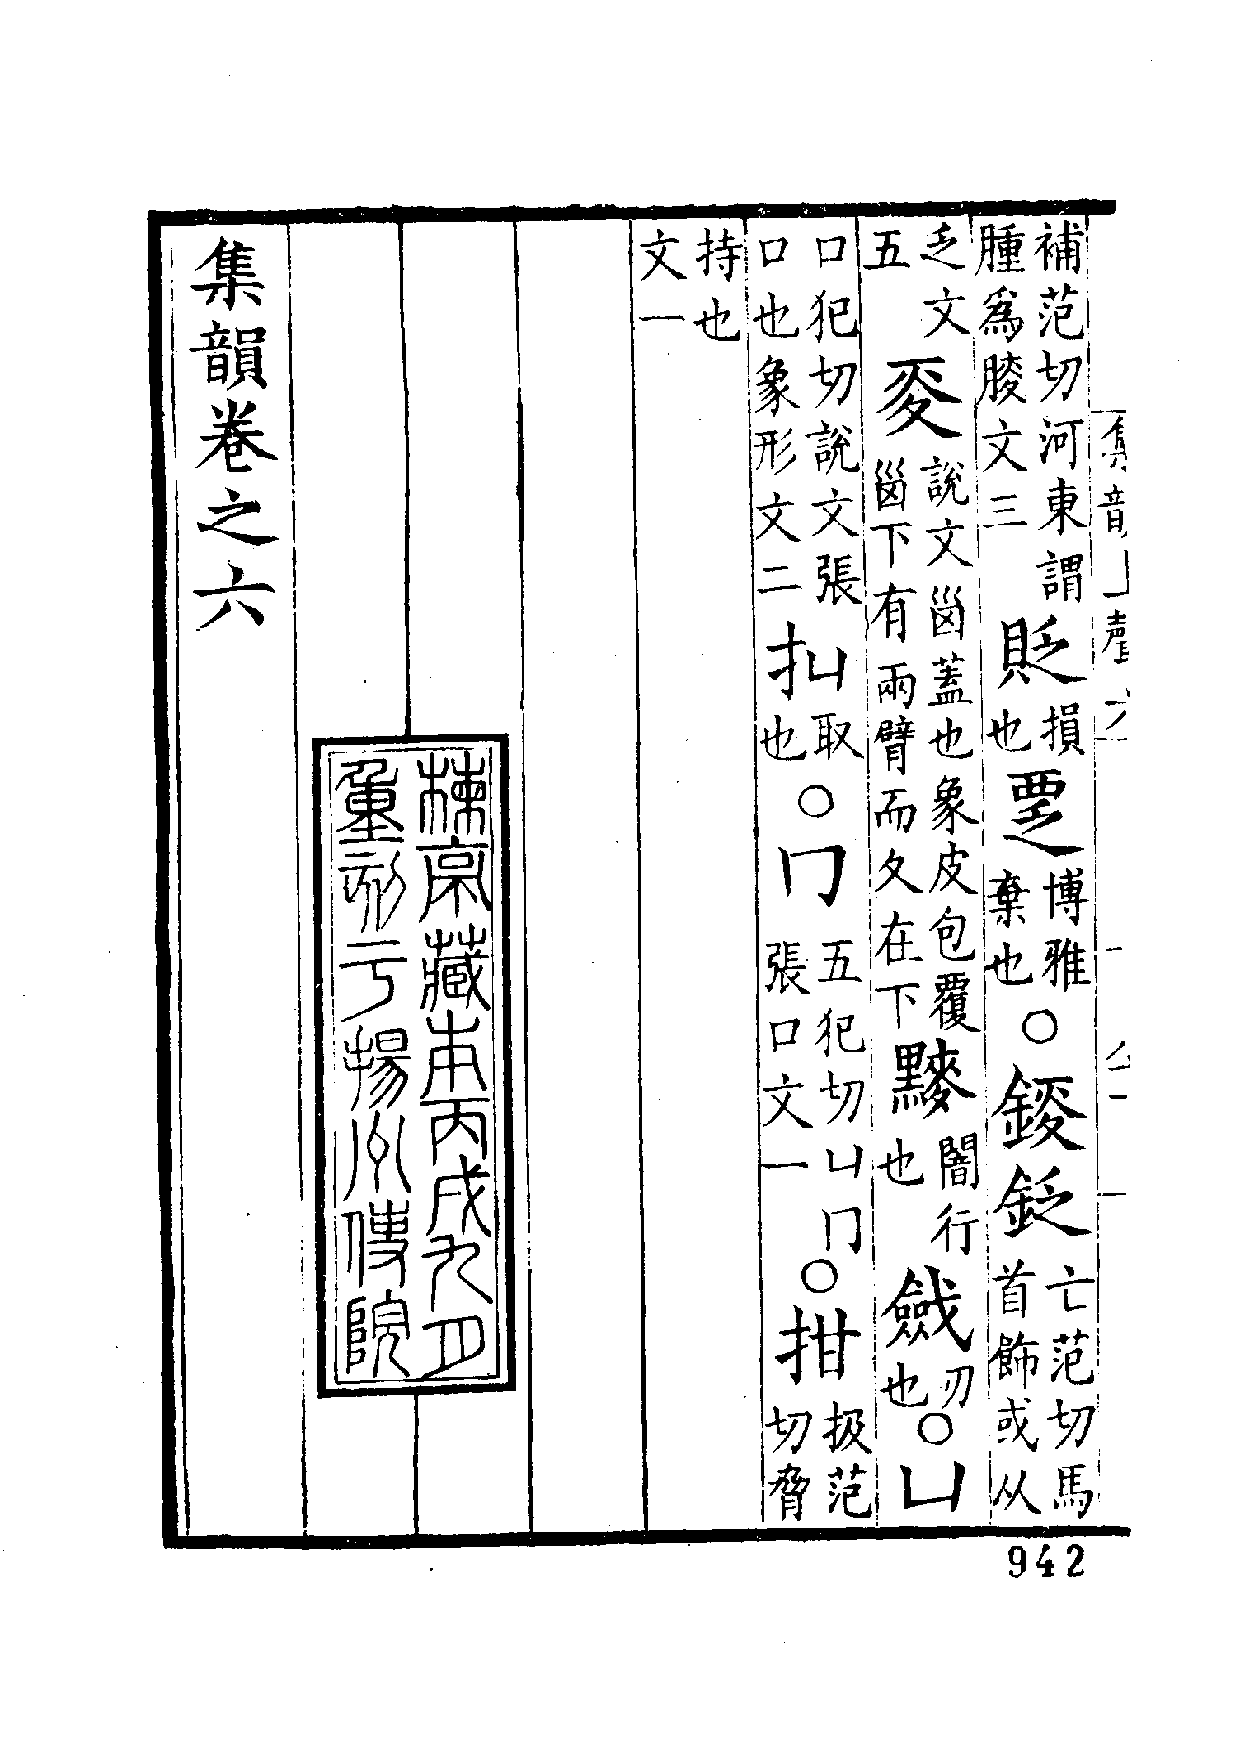 補范切河東謂腫爲䐶文三貶損也覂博雅棄也○鋄鈠亡范切馬首飾或从
乏文五㚇說文㘝蓋也象皮包覆㘝下有兩臂而夊在下䵿闇行也㰸刃也○凵
口犯切說文張口也象形文二扣取也○冂五犯切凵冂張口文一○拑扱范切脅
持也文一
集韻卷之六
楝亭藏本丙戌九月
重刻于揚州使院
集韻上聲六
942